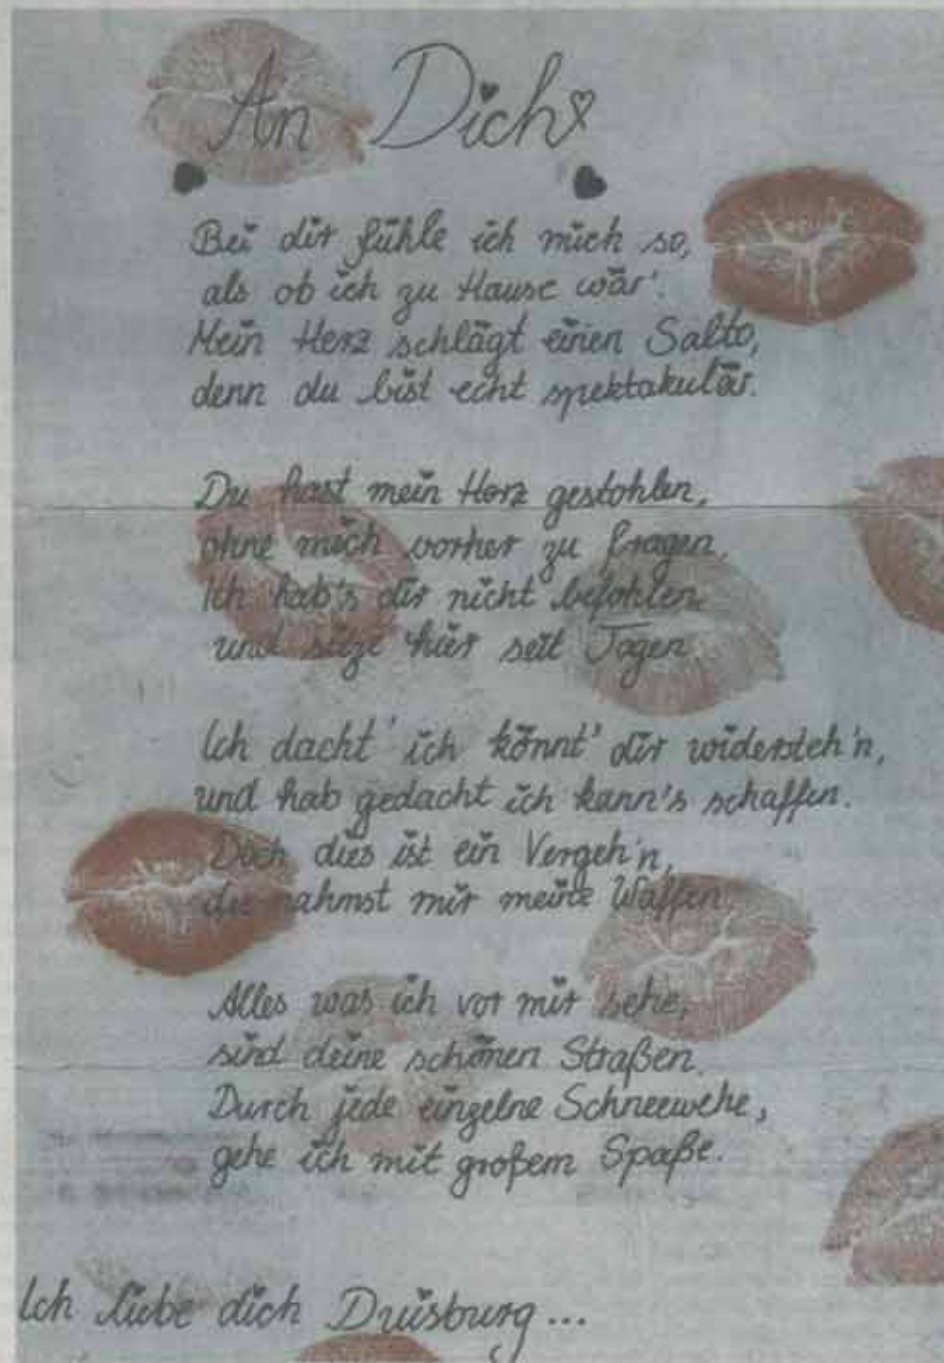 An Dich
Bei dir fühle ich mich so,
als ob ich zu Hause wär'.
Mein Herz schlägt einen Salto,
denn du bist echt spektakulär.
Du hast mein Herz gestohlen,
ohne mich vorher zu fragen.
Ich hab's dir nicht befohlen
und sitze hier seit Tagen
Ich dacht' ich könnt' dir widersteh'n,
und hab gedacht ich kann's schaffen.
Doch dies ist ein Vergeh'n,
du nahmst mir meine Waffen.
Alles was ich vor mir sehe,
sind deine schönen Straßen.
Durch jede einzelne Schneewehe,
gehe ich mit großem Spaße.
Ich liebe dich Duisburg...